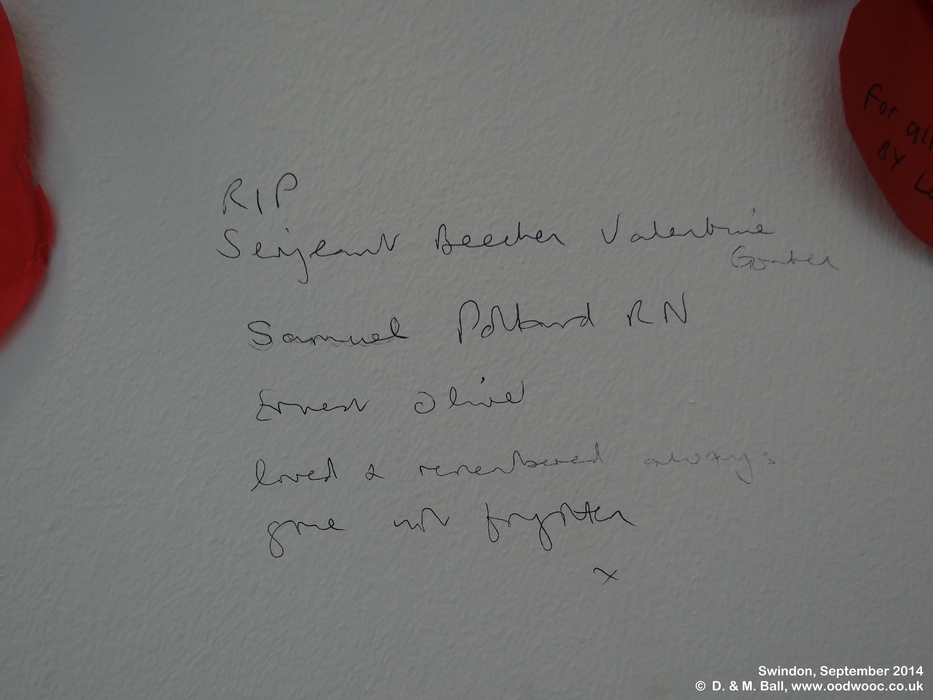 RIP
Serjeant Beecher Valentine
Samuel Pollard RN
Ernest Olive
loved & remembered always
gone not forgotten
x
For all
BY
Swindon, September 2014
© D. & M. Ball, www.oodwooc.co.uk